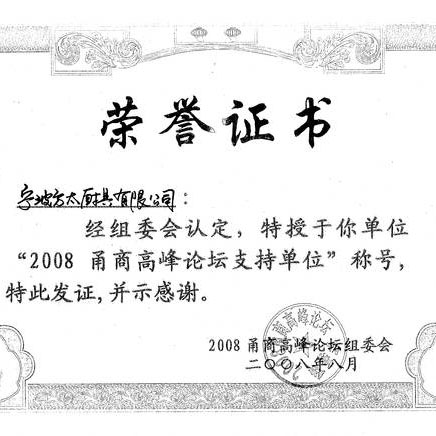 荣誉证书
宁波方太厨具有限公司：
经组委会认定，特授于你单位
“2008 甬商高峰论坛支持单位”称号，
特此发证，并示感谢。
2008 甬商高峰论坛组委会
二〇〇八年八月